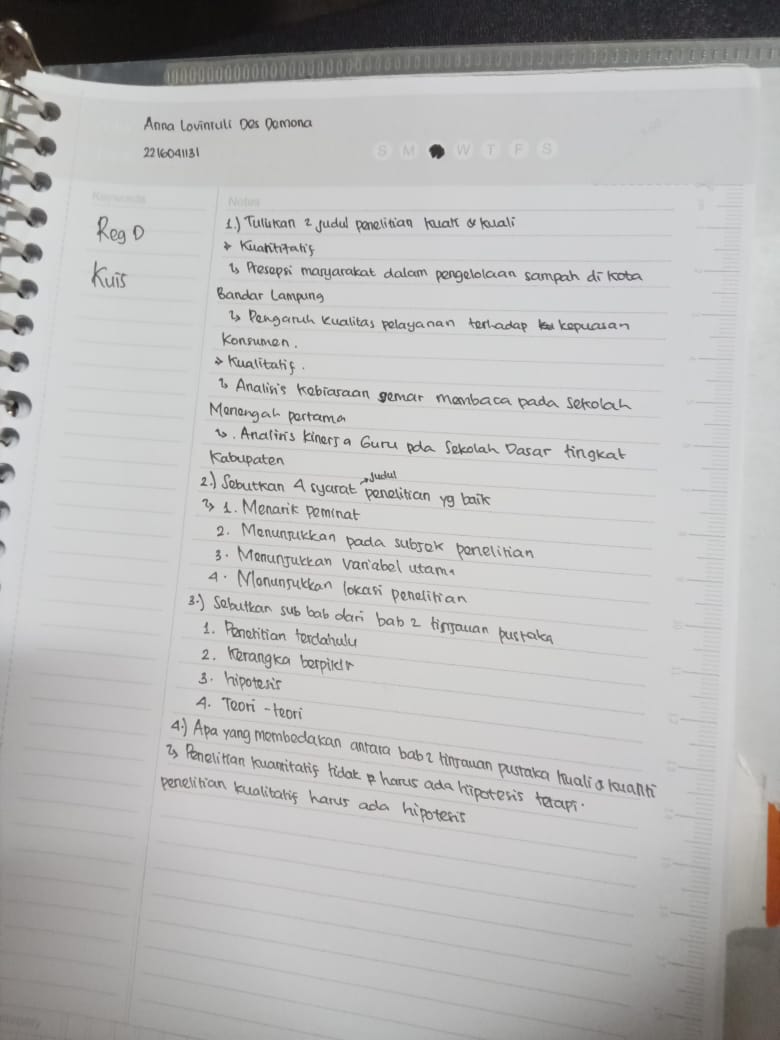 Anna Lovinruli Des Demona
2216041131
S M W T F S
Keywords
Notes
Reg D
Kuis
1.) Tuliskan 2 judul penelitian kuan & kuali
→ Kuantitatif
↳ Presepsi masyarakat dalam pengelolaan sampah di kota
Bandar Lampung
↳ Pengaruh kualitas pelayanan terhadap kepuasan
Konsumen.
→ Kualitatif.
↳ Analisis kebiasaan gemar membaca pada sekolah
Menengah pertama
↳. Analisis kinerja Guru pda Sekolah Dasar tingkat
Kabupaten
2.) Sebutkan 4 syarat →judul penelitian yg baik
↳ 1. Menarik peminat
2. Menunjukkan pada subjek penelitian
3. Menunjukkan variabel utama
4. Menunjukkan lokasi penelitian
3.) Sebutkan sub bab dari bab 2 tinjauan pustaka
1. Penelitian terdahulu
2. Kerangka berpikir
3. hipotesis
4. Teori - teori
4.) Apa yang membedakan antara bab 2 tinjauan pustaka kuali & kuanti
↳ Penelitian kuantitatif tidak harus ada hipotesis tetapi.
penelitian kualitatif harus ada hipotesis